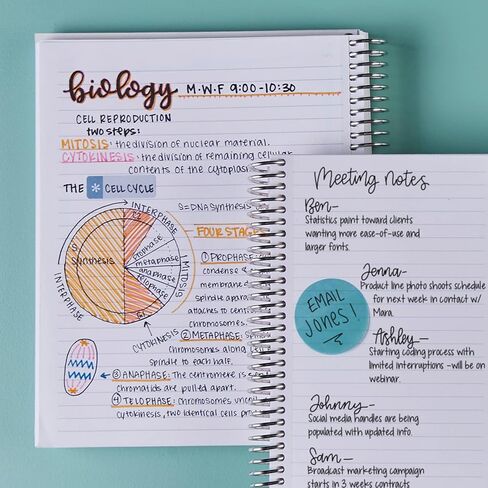 biology M·W·F 9:00-10:30
CELL REPRODUCTION
two steps:
MITOSIS: the division of nuclear material.
CYTOKINESIS: the division of remaining cellular
contents of the cytoplasm
THE * CELL CYCLE
S=DNA synthesis
INTERPHASE
G2
S
synthesis
prophase
metaphase
anaphase
telophase
MITOSIS
INTERPHASE
G1
CYTOKINESIS
FOUR STAGE
① PROPHASE:
condense &
membrane
spindle apara
attaches to cent
chromosomes.
② METAPHASE:
chromosomes along
spindle to each half.
③ ANAPHASE: the centromere is
chromatids are pulled apart.
④ TELOPHASE: chromosomes uncoi
cytokinesis, two identical cells
Meeting notes
Ben—
Statistics point toward clients
wanting more ease-of-use and
larger fonts.
Jenna—
Product line photo shoots schedule
for next week in contact w/
Mara.
EMAIL
JONES!
Ashley—
Starting coding process with
limited interruptions -will be on
webinar.
Johnny—
Social media handles are being
populated with updated info.
Sam—
Broadcast marketing campaign
starts in 3 weeks contracts